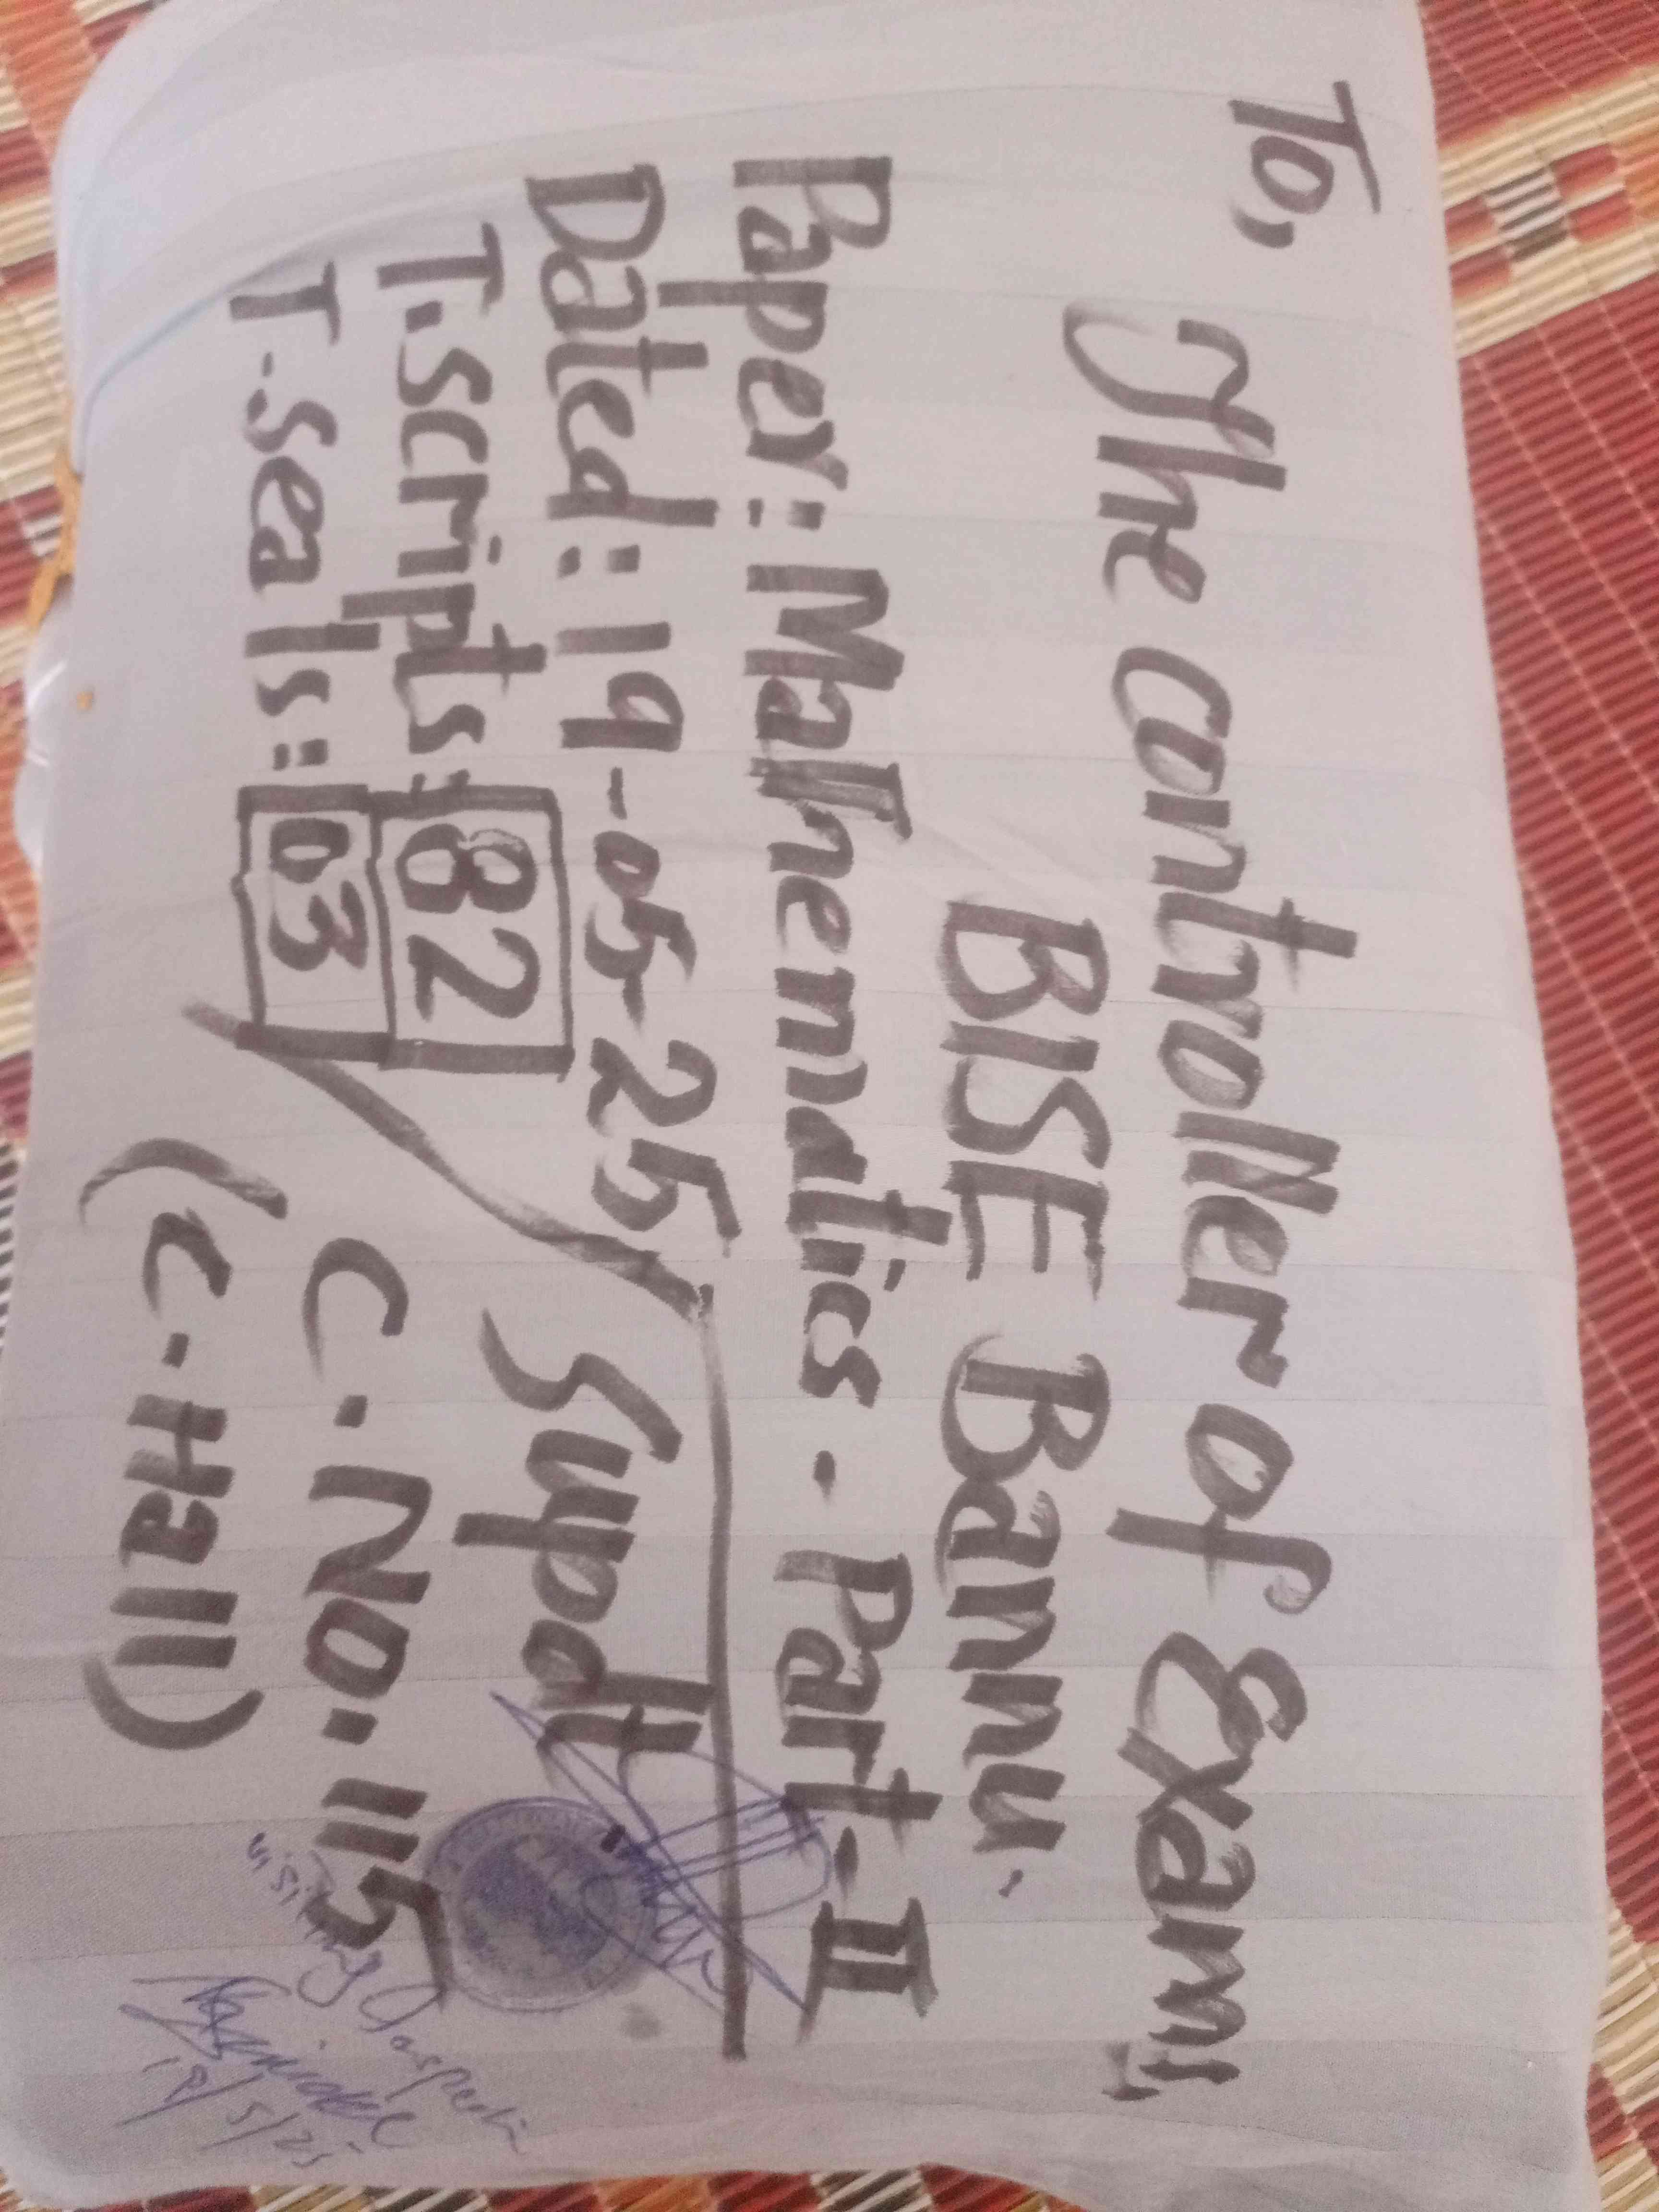 To,
The controller of Exam,
BISE Bannu.
Paper: Mathematics - Part - II
Dated: 19-05-25
T.Scripts: 82
T.Seals: 03
Supdtt
C.No. 115
(C-Hall)
visiting
19/5/25